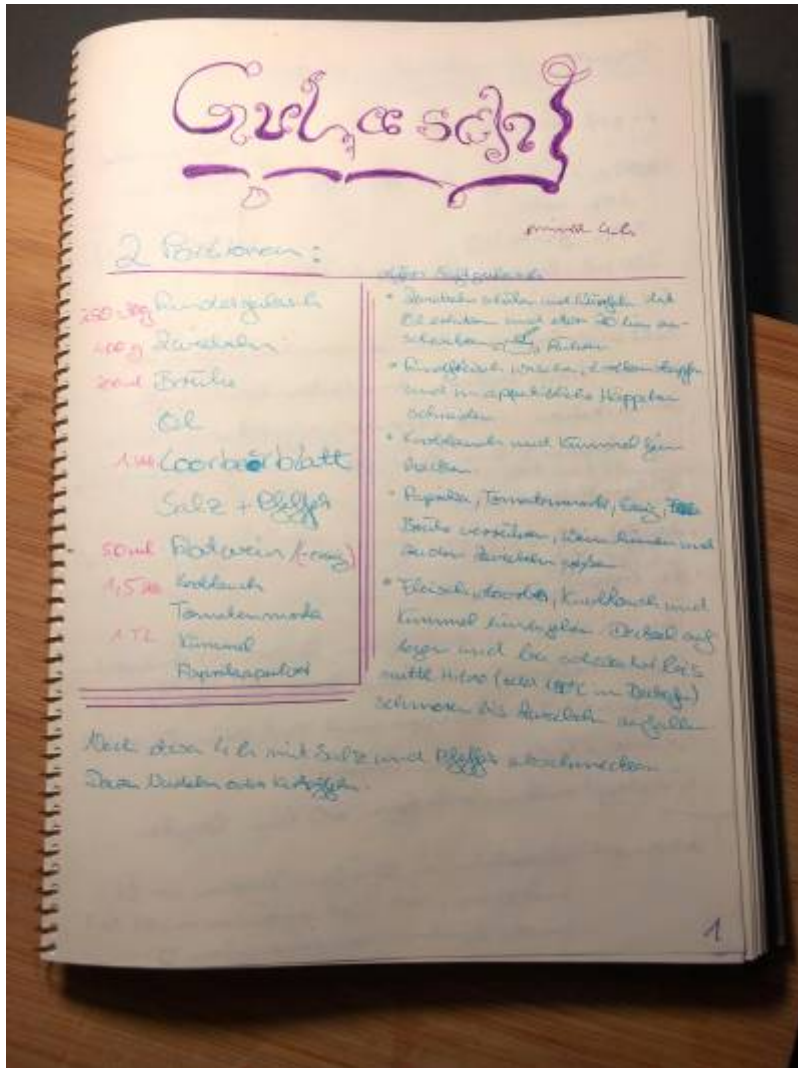 Gulasch!
mind. 4h
2 Portionen:
250-300g Rindergulasch
400g Zwiebeln
200ml Brühe
Öl
1 Loorbeerblatt
Salz + Pfeffer
50ml Rotwein (-essig)
1,5 Knoblauch
Tomatenmark
1 TL Kümmel
Paprikapulver
Saftgulasch
• Zwiebeln schälen und würfeln. Mit
Öl erhitzen und etwa 20 min
• Rindfleisch waschen, trocken tupfen
und in appetitliche Häppchen
schneiden
• Knoblauch und Kümmel fein
hacken
• Paprika, Tomatenmark, Essig,
Brühe verrühren, und
zu den Zwiebeln gießen
• Fleisch, Knoblauch und
Kümmel Deckel auf
legen und bei schwacher bis
mittl. Hitze (oder 180°C im Backofen)
schmoren bis Zwiebeln zerfallen
Nach etwa 4h mit Salz und Pfeffer abschmecken
Dazu Nudeln oder Kartoffeln.
1